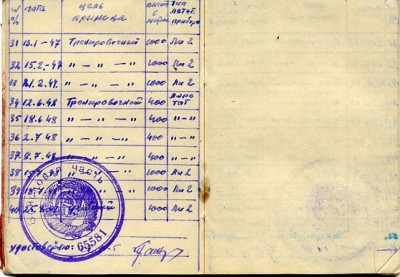 № п/п дата цель прыжка выст. в метр. тип летат. прибора
31 13.1-47 Тренировочный 1000 Ли 2
32 15.2-47 " — " — " 1000 Ли 2
21.2.47 " — " — " 1000 Ли 2
34 12.6.48 Тренировочный 400 аэростат
35 18.6.48 " — " — " 400 "-"
36 2.7.48 " — " — " 400 "-"
37 8.7.48 " — " — " 400 "-"
38 1000 Ли 2
39 1000 Ли 2
40 1000 Ли 2
войсковая часть
65581
удостоверяю: